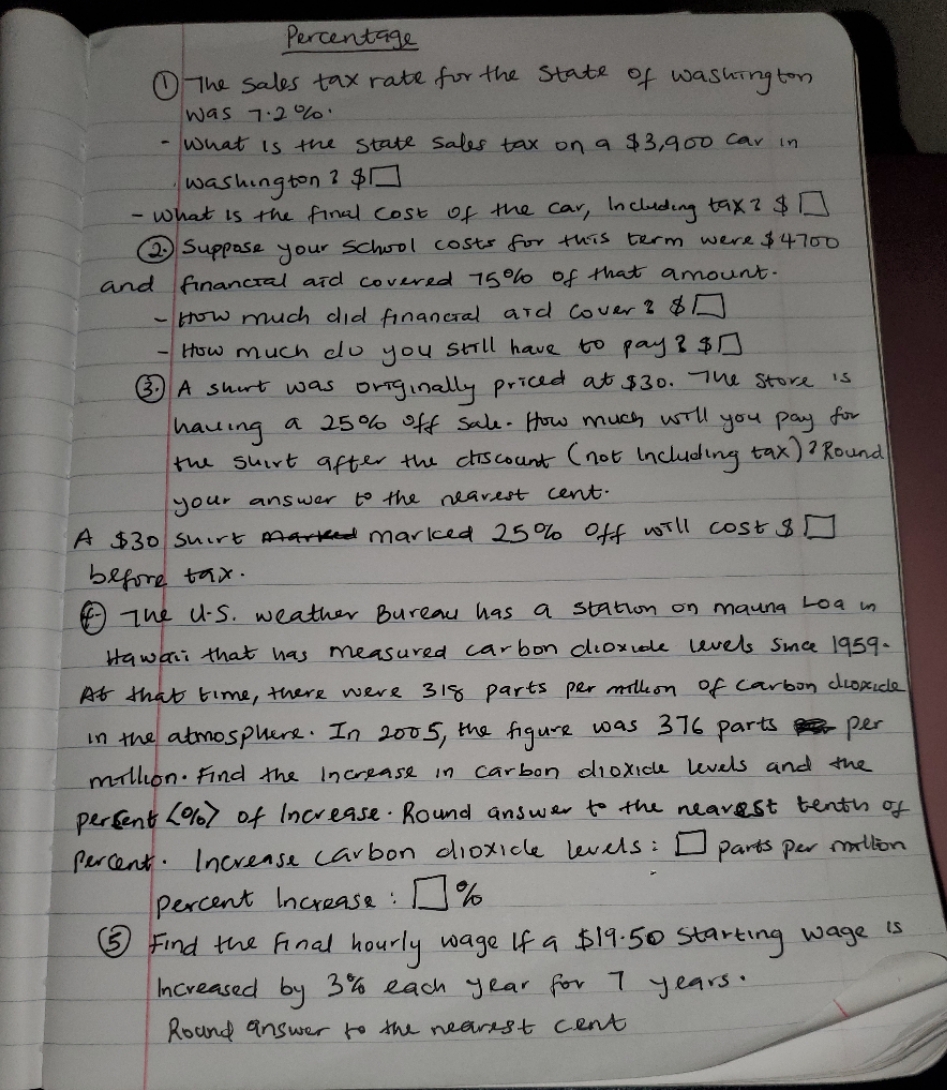 Percentage
① The sales tax rate for the State of Washington
was 7.2%.
- What is the State Sales tax on a $3,900 car in
Washington? $□
- What is the final cost of the car, Including tax? $□
②. Suppose your School costs for this term were $4700
and financial aid covered 75% of that amount.
- How much did financial aid cover? $□
- How much do you still have to pay? $□
③. A shirt was originally priced at $30. The store is
having a 25% off sale. How much will you pay for
the shirt after the discount (not Including tax)? Round
your answer to the nearest cent.
A $30 shirt marked marked 25% off will cost $□
before tax.
④ The U.S. weather Bureau has a station on mauna Loa in
Hawaii that has measured carbon dioxide levels since 1959.
At that time, there were 318 parts per million of carbon dioxide
in the atmosphere. In 2005, the figure was 376 parts per
million. Find the Increase in carbon dioxide levels and the
percent (%) of Increase. Round answer to the nearest tenth of
percent. Increase carbon dioxide levels: □ parts per million
percent Increase: □%
⑤ Find the final hourly wage If a $19.50 starting wage is
Increased by 3% each year for 7 years.
Round answer to the nearest cent